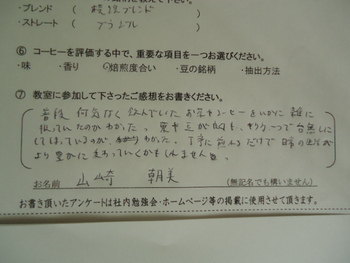 ・ブレンド（ 横浜ブレンド ）
・ストレート（ ブラジル ）
⑥ コーヒーを評価する中で、重要な項目を一つお選びください。
・味 ・香り ・焙煎度合い ・豆の銘柄 ・抽出方法
⑦ 教室に参加して下さったご感想をお書きください。
普段、何気なく飲んでいたお茶やコーヒーをいかに雑に
扱っていたのかわかった。
してはっているのが、わかった。丁寧に煎れるだけで
より豊かに かもしれません
お名前 山崎 朝美 (無記名でも構いません)
お書き頂いたアンケートは社内勉強会・ホームページ等の掲載に使用させて頂きます。